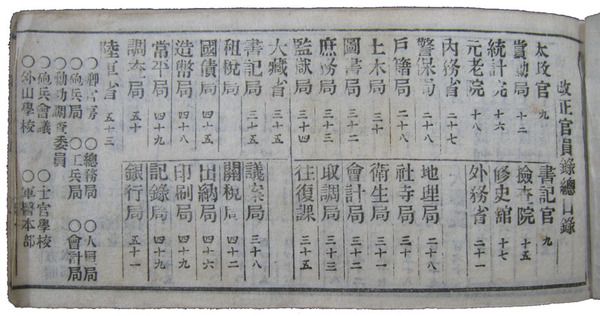 改正官員錄總目錄
太政官 九 書記官 九
賞勳局 十二 檢査院 十五
統計院 十六 修史館 十七
元老院 十八 外務省 二十一
内務省 二十七
警保局 二十八 地理局 二十八
戸籍局 二十八 社寺局 三十
土木局 三十一 衛生局 三十一
圖書局 三十二 會計局 三十二
庶務局 三十三 取調局 三十三
監獄局 三十五 往復課 三十五
大藏省 三十五
書記局 三十五 議案局 三十八
租税局 三十八 關税局 四十二
國債局 四十五 出納局 四十六
造幣局 四十八 印刷局 四十九
常平局 四十九 記録局 四十九
調査局 五十 銀行局 五十一
陸軍省 五十三
○卿官房 ○總務局 ○人員局
○砲兵局 ○工兵局 ○會計局
○勳功調査委員
○砲兵會議 ○士官學校
○山學校 ○軍醫本部